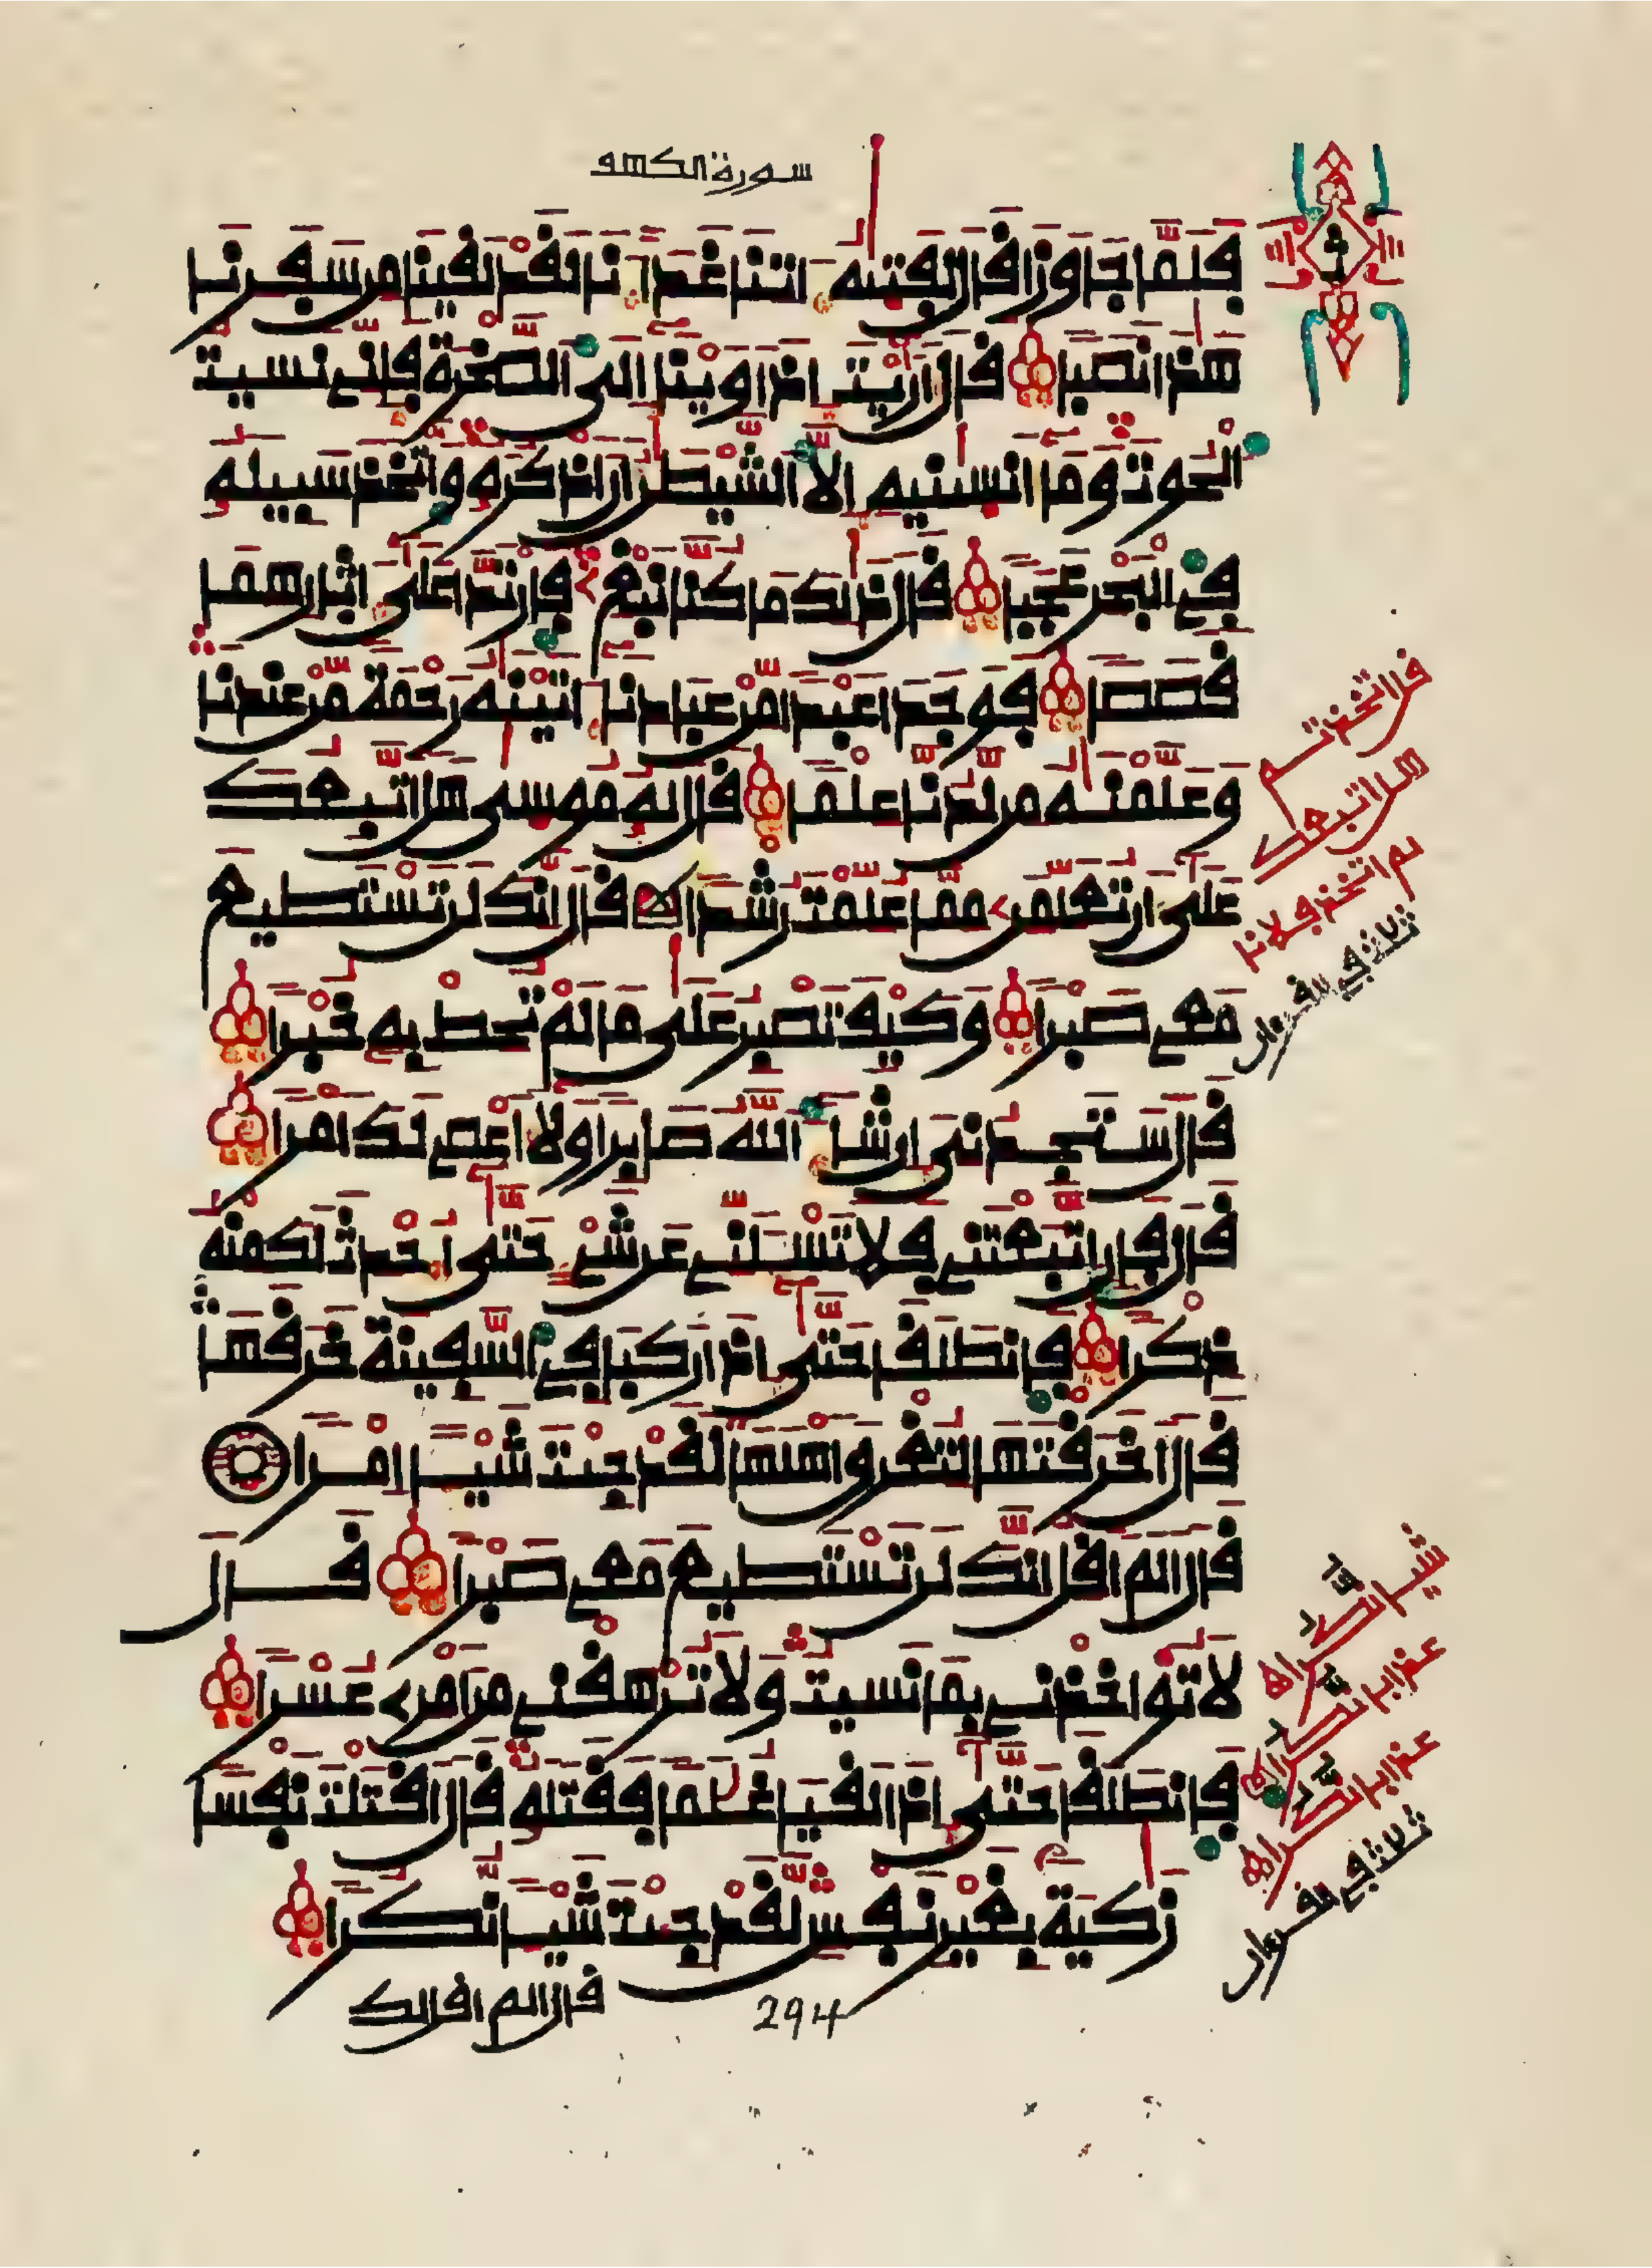 سورة الكهف
فلما جاوزا قال لفتيه اتنا غدانا لقد لقينا من سفرنا
هذا نصبا قال اريت اذ اوينا الى الصخرة فإنى نسيت
الحوت وما انسنيه الا الشيطن ان اذكره واتخذ سبيله
فى البحر عجبا قال ذلك ما كنا نبغ فارتدا على اثارهما
قصصا فوجدا عبدا من عبادنا اتينه رحمة من عندنا
وعلمنه من لدنا علما قال له موسى هل اتبعك
على ان تعلمن مما علمت رشدا قال انك لن تستطيع
معى صبرا وكيف تصبر على ما لم تحط به خبرا
قال ستجدنى ان شا الله صابرا ولا اعصى لك امرا
قال فإن اتبعتنى فلا تسـلنى عن شى حتى احدث لك منه
ذكرا فانطلقا حتى اذا ركبا فى السفينة خرقها
قال اخرقتها لتغرق اهلها لقد جيت شيـا امرا
قال الم اقل انك لن تستطيع معى صبرا قال
لا تواخذنى بما نسيت ولا ترهقنى من امرى عسرا
فانطلقا حتى اذا لقيا غلما فقتله قال اقتلت نفسا
زكية بغير نفس لقد جيت شيـا نكرا
قال الم اقل لك
294
هل اتبعك
شيـا نكرا
عذابا نكرا
عذابا نكرا